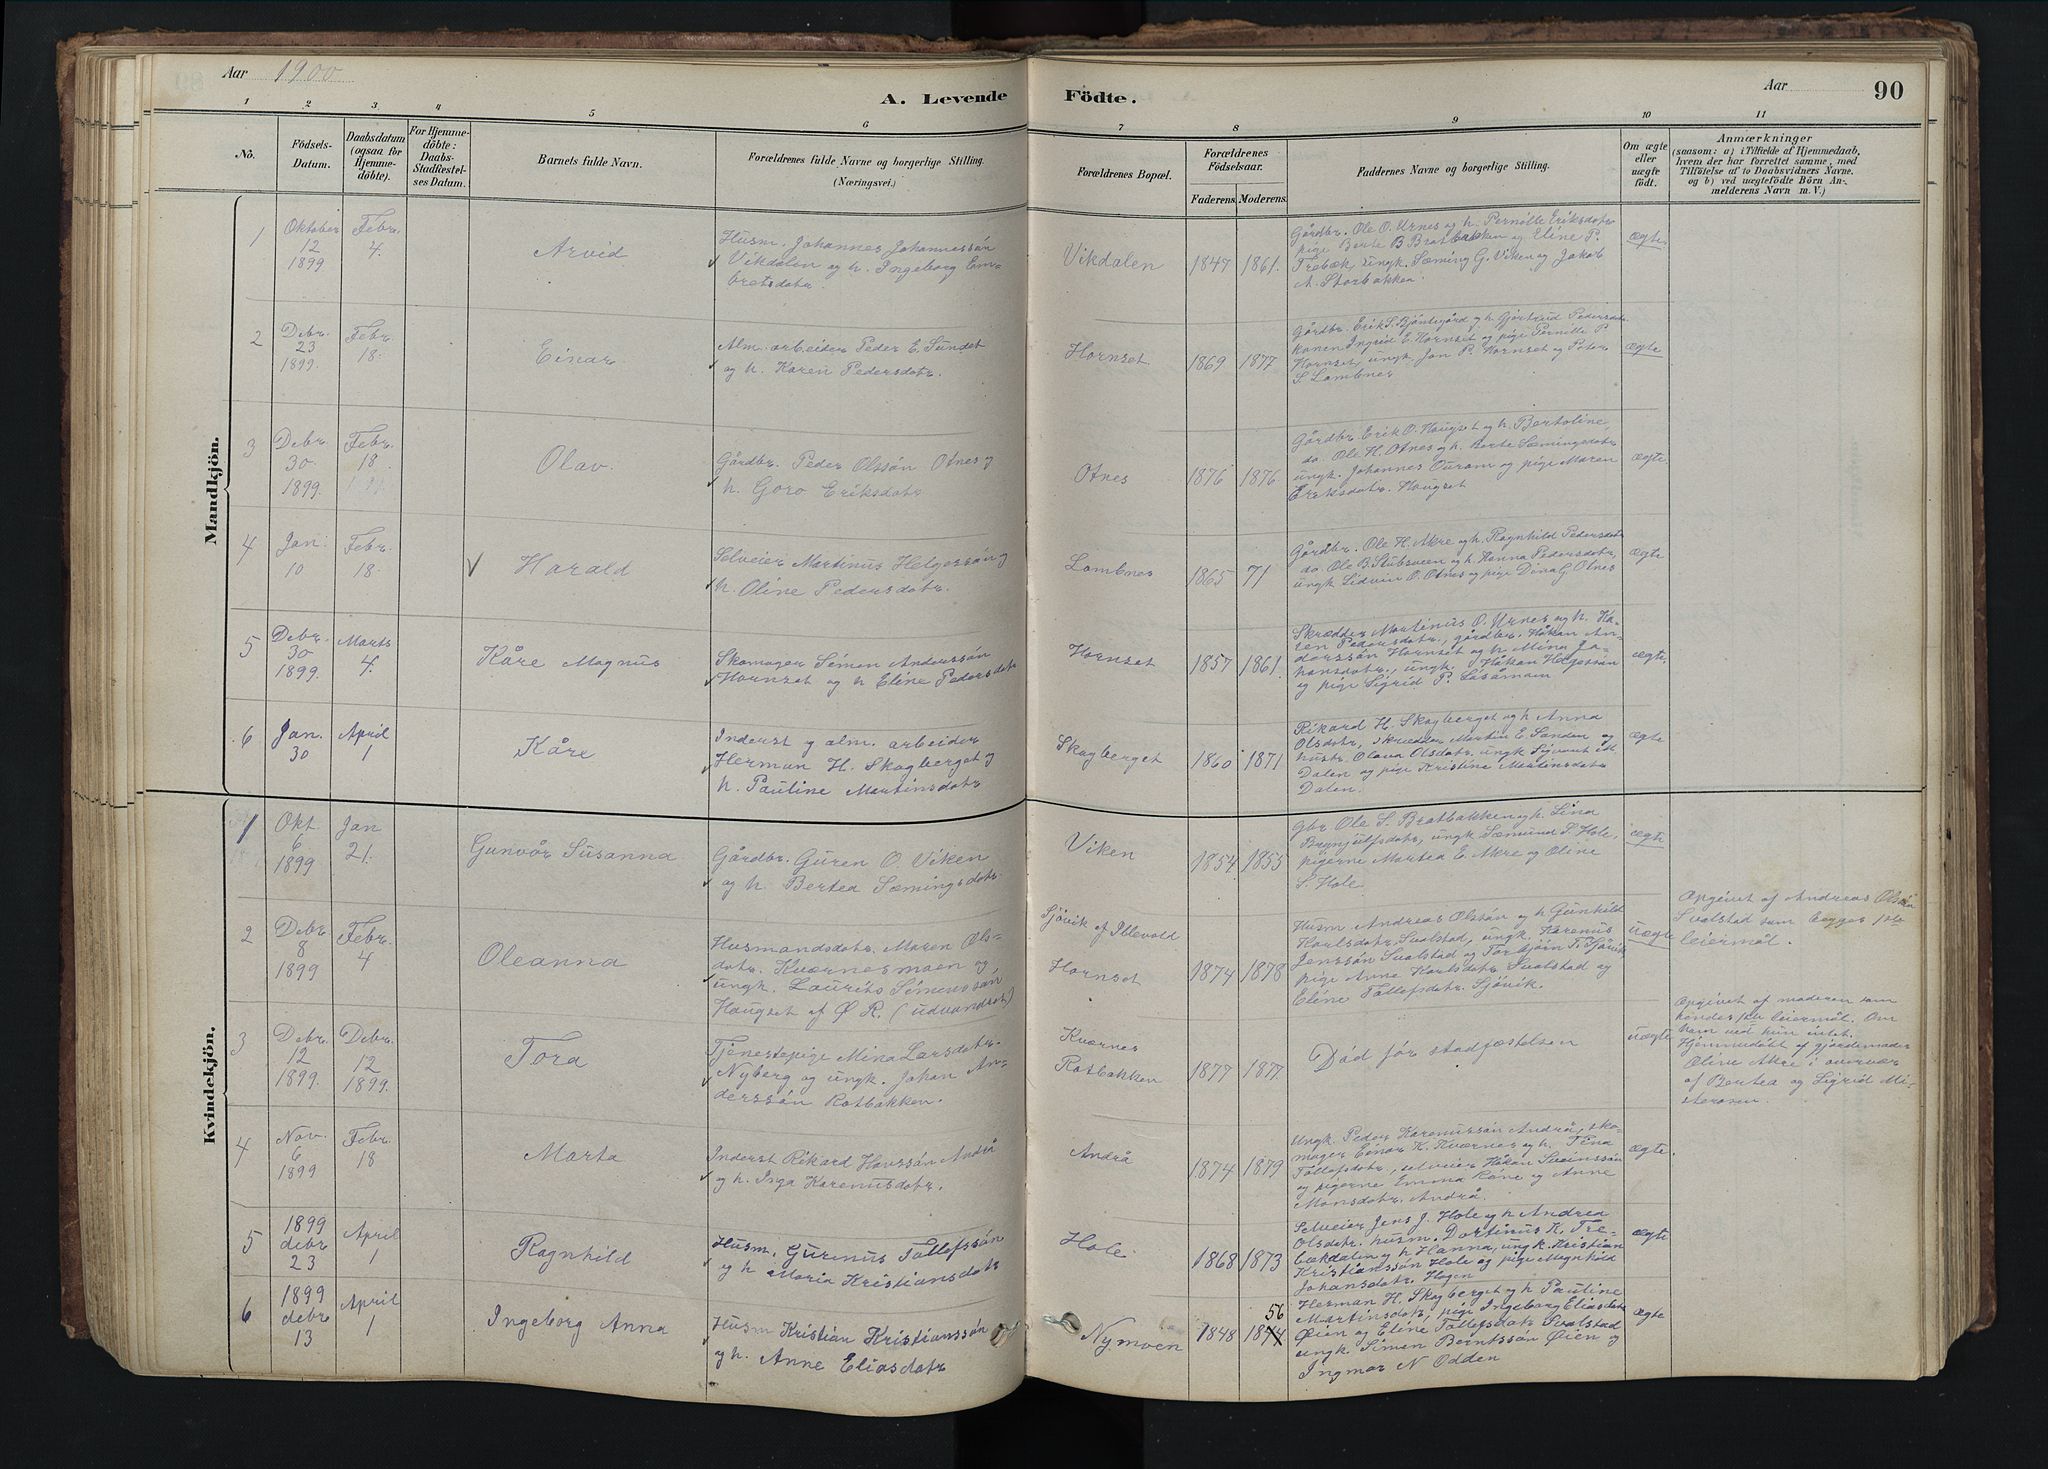 Aar 1900
A. Levende Födte.
Aar
90
1 2 3 4 5 6 7 8 9 10 11
No.
Födsels-
Datum.
Daabsdatum
(ogsaa for
Hjemme-
döbte).
For Hjemme-
döbte:
Daabs-
Stadfæstel-
ses Datum.
Barnets fulde Navn.
Forældrenes fulde Navne og borgerlige Stilling.
(Næringsvei.)
Forældrenes Bopæl.
Forældrenes
Födselsaar.
Faderens. Moderens.
Faddernes Navne og borgerlige Stilling.
Om ægte
eller
uægte
födt.
Anmærkninger
(saasom: a) i Tilfælde af Hjemmedaab,
hvem der har forrettet samme, med
Tilföielse af to Daabsvidners Navne.
og b) ved uægtefödte Börn An-
melderens Navn m. V.)
Mandkjön.
1
Oktober
12
1899
Febr.
4.
Arvid
Husm. Johannes Johannessön
Vikdalen og h. Ingeborg Em-
bretsdotr.
Vikdalen
1847
1861.
Gårdbr. Ole O. Urnes og h. Pernille Eriksdotr.
pige Berte B Bratbakken og Eline P.
Trebæk, ungk. Sæming G. Viken og Jakob
A. Storbakken
ægte
2
Debr.
23
1899.
Febr.
18.
Einar
Alm. arbeider Peder E. Sundet
og h. Karen Pedersdotr.
Hornset
1869
1877
Gårdbr. Erik S. Bjöntegård og h. Gjertrud Pedersdotr.
konen Ingrid E. Hornset og pige Pernille P.
Hornset, ungk. Jon P. Hornset og Peter
S. Lombnes
ægte
3
Debr.
30.
1899.
Febr.
18.
Olav.
Gårdbr. Peder Olssön Otnes g
h. Goro Eriksdotr.
Otnes
1876
1876
Gårdbr. Erik O. Haugset og h. Bertoline,
do. Ole H. Otnes og h. Berte Sæmingsdotr.
ungk. Johannes Ouram og pige Maren
Eriksdotr. Haugset
ægte.
4
Jan.
10
Febr.
18.
Harald
Selveier Martinus Helgessön g
h. Oline Pedersdotr.
Lombnes
1865
71
Gårdbr. Ole H. Akre og h. Ragnhild Pedersdotr.
do. Ole B. Stubsveen og h. Hanna Pedersdotr,
ungk Lidvin O. Otnes og pige Dina G. Otnes
ægte
5
Debr.
30
1899.
Marts
4.
Kåre Magnus
Skomager Simen Anderssön
Hornset og h Eline Pedersdotr
Hornset
1857
1861.
Skrædder Martinus O. Urnes og h. Ka-
ren Pedersdotr., gårdbr. Håkan An-
derssön Hornset og h Mina Jo-
hansdotr., ungk. Håkan Helgessön
og pige Sigrid P. Låsåmom
ægte.
6
Jan.
30
April
1
Kåre
Inderst g alm. arbeider
Herman H. Skogberget g
h. Pauline Martinsdotr
Skogberget
1860
1871
Rikard H. Skogberget og h Anna
Olsdotr, skrædder Martin E. Sanden og
hustr. Olava Olsdotr. ungk Sigvart M
Dalen og pige Kristine Martinsdotr
Dalen.
ægte
Kvindekjön.
1
Okt.
6
1899
Jan
21.
Gunvör Susanna
Gårdbr. Guren O. Viken
og h. Bertea Sæmingsdotr.
Viken
1854
1855
Gbr Ole S. Bratbakken og h. Sina
Brynjulfsdotr, ungk Sæmund S. Hole,
pigerne Martea E. Akre og Oline
S. Hole
ægte
2
Debr
8
1899
Febr.
4
Oleanna
Husmandsdotr. Maren Ols-
dotr. Kværnesmoen og
ungk. Laurits Simenssön
Haugset af Ø R. (udvandret)
Sjövik af Iblevold
Hornset
1874
1878
Husm Andreas Olssön og h Gunhild
Karlsdotr Svalstad, ungk. Karenus
Jenssön Svalstad og Torbjörn T. Sjövik
pige Anne Karlsdotr Svalstad og
Eline Tollefsdotr. Sjövik.
uægte
Opgivet af Andreas Olssön
Svalstad som begges 1ste
leiermål.
3
Debr.
12
1899.
Debr.
12
1899.
Tora
Tjenestepige Mina Larsdotr.
Nyberg og ungk. Johan An-
derssön Rotbakken.
Kværnes
Rotbakken
1877
1877.
Död för stadfæstelsen
uægte
Opgivet af moderen som
hendes 1ste leiermål. Om
ham ved hun intet.
Hjemmedöbt af gjordemoder
Oline Akre i overvær
af Bertea og Sigrid Mi-
sterosen.
4
Nov.
6
1899
Febr.
18
Marta
Inderst Rikard Hanssön Andrå
og h. Inga Karenusdotr.
Andrå
1874
1879
Ungk. Peder Karenussön Andrå, sko-
mager Einar K. Kværnes og h. Tena
Tollefsdotr, selveier Håkan Sveinssön
og pigerne Emma Kåne og Anne
Monsdotr. Andrå.
ægte.
5
1899
debr
23
April
1
Ragnhild
Husm. Gurenus Tollefssön
g h Maria Kristiansdotr
Hole
1868
1873
Selveier Jens J. Hole og h Andrea
Olsdotr. husm. Dortinus K. Tre-
bækdalen og h Hanna, ungk. Kristian
Kristianssön Hole og pige Magnhild
Johansdotr. Hagen
ægte
6
1899
debr
13
April
1
Ingeborg Anna
Husm Kristian Kristianssön
og h. Anne Eliasdotr
Nymoen
1848
56
1874
Herman H. Skogberget og h Pauline
Martinsdotr, pige Ingeborg Eliasdotr
Øien og Eline Tollefsdotr Svalstad
ungk. Simen Berntssön Øien g
Ingmar N Odden
ægte